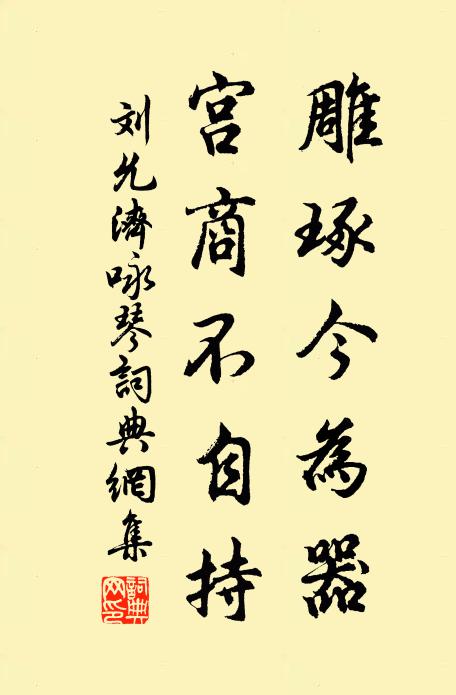 雕琢今為器
宮商不自持
刘允濟咏琴詞典網集
詞典網印